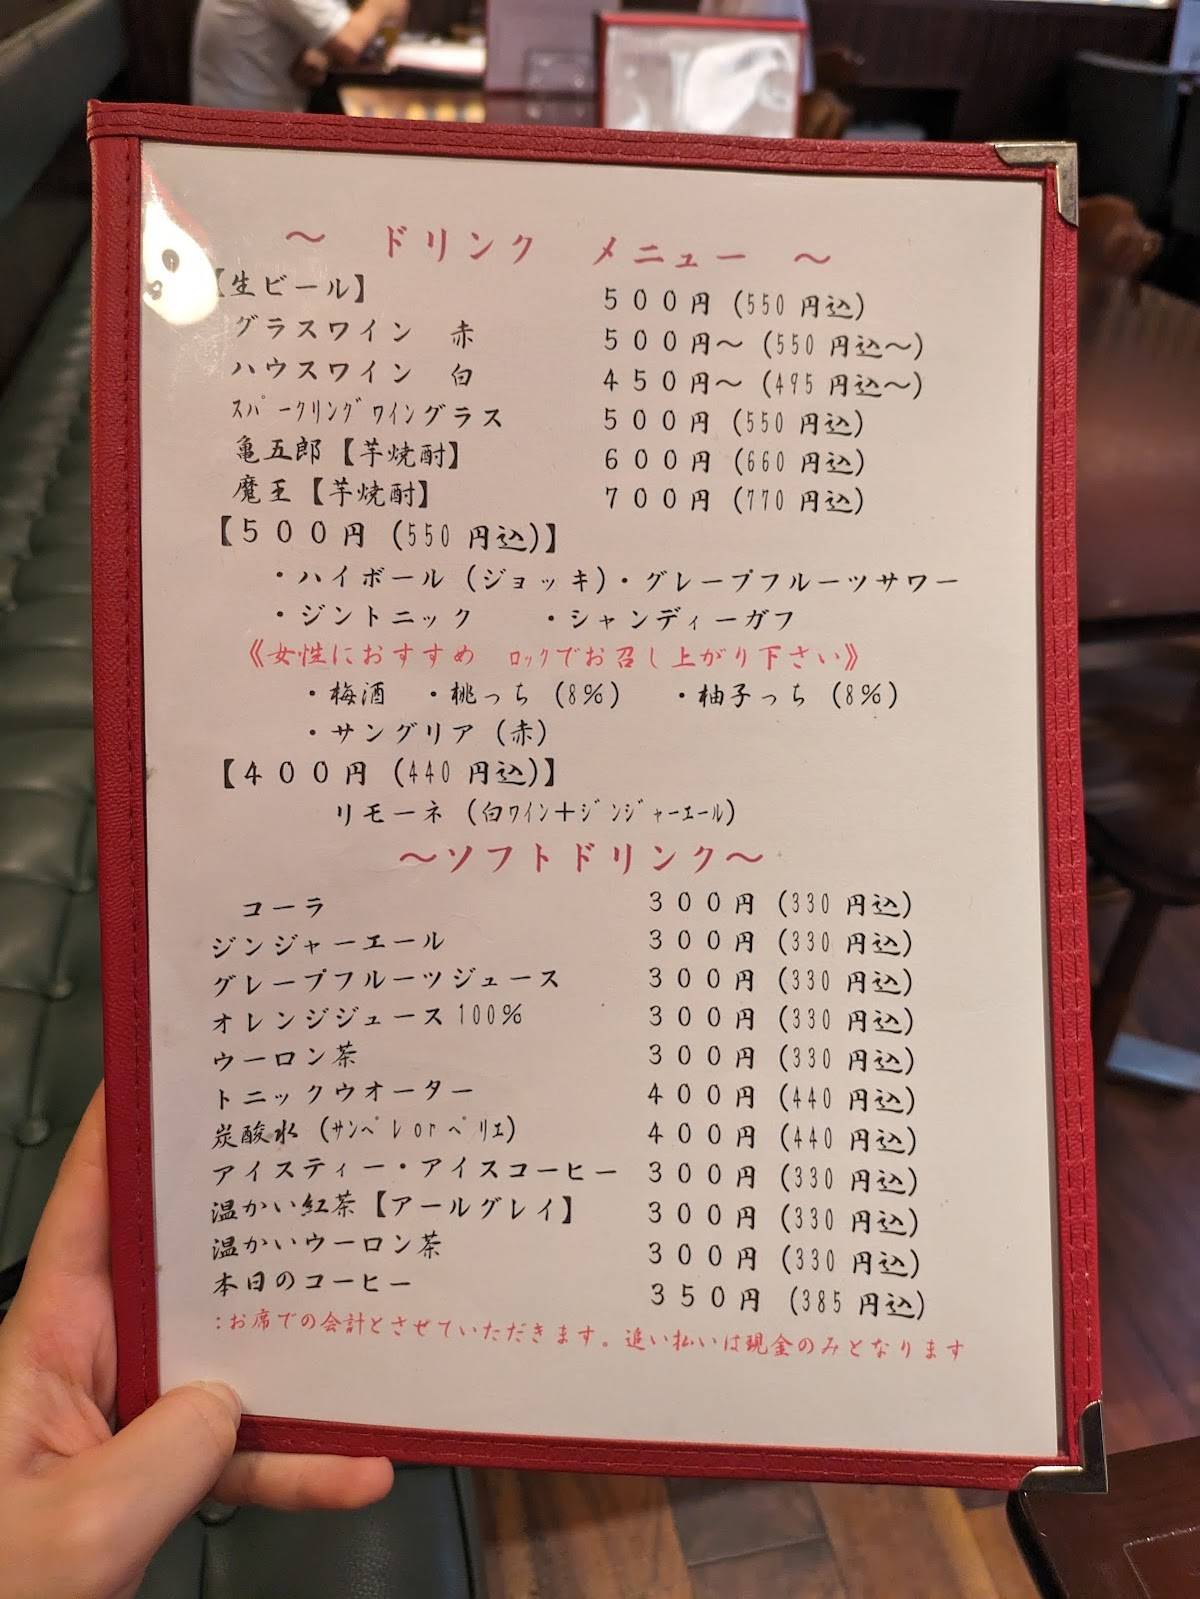 ～　ドリンク　メニュー　～
【生ビール】　５００円（550 円込）
グラスワイン　赤　５００円～（550 円込～）
ハウスワイン　白　４５０円～（495 円込～）
ｽﾊﾟｰクリングﾞワイングラス　５００円（550 円込）
亀五郎【芋焼酎】　６００円（660 円込）
魔王【芋焼酎】　７００円（770 円込）
【５００円（550 円込）】
・ハイボール（ジョッキ）・グレープフルーツサワー
・ジントニック　・シャンディーガフ
《女性におすすめ　ﾛｯｸでお召し上がり下さい》
・梅酒　・桃っち（8%）　・柚子っち（8%）
・サングリア（赤）
【４００円（440 円込）】
リモーネ（白ﾜｲﾝ＋ｼﾞﾝｼﾞｬｰｴｰﾙ）
～ソフトドリンク～
コーラ　３００円（330 円込）
ジンジャーエール　３００円（330 円込）
グレープフルーツジュース　３００円（330 円込）
オレンジジュース 100%　３００円（330 円込）
ウーロン茶　３００円（330 円込）
トニックウオーター　４００円（440 円込）
炭酸水（ｻﾝﾍﾟﾚ or ﾍﾟﾘｴ）　４００円（440 円込）
アイスティー・アイスコーヒー　３００円（330 円込）
温かい紅茶【アールグレイ】　３００円（330 円込）
温かいウーロン茶　３００円（330 円込）
本日のコーヒー　３５０円（385 円込）
：お席での会計とさせていただきます。追い払いは現金のみとなります